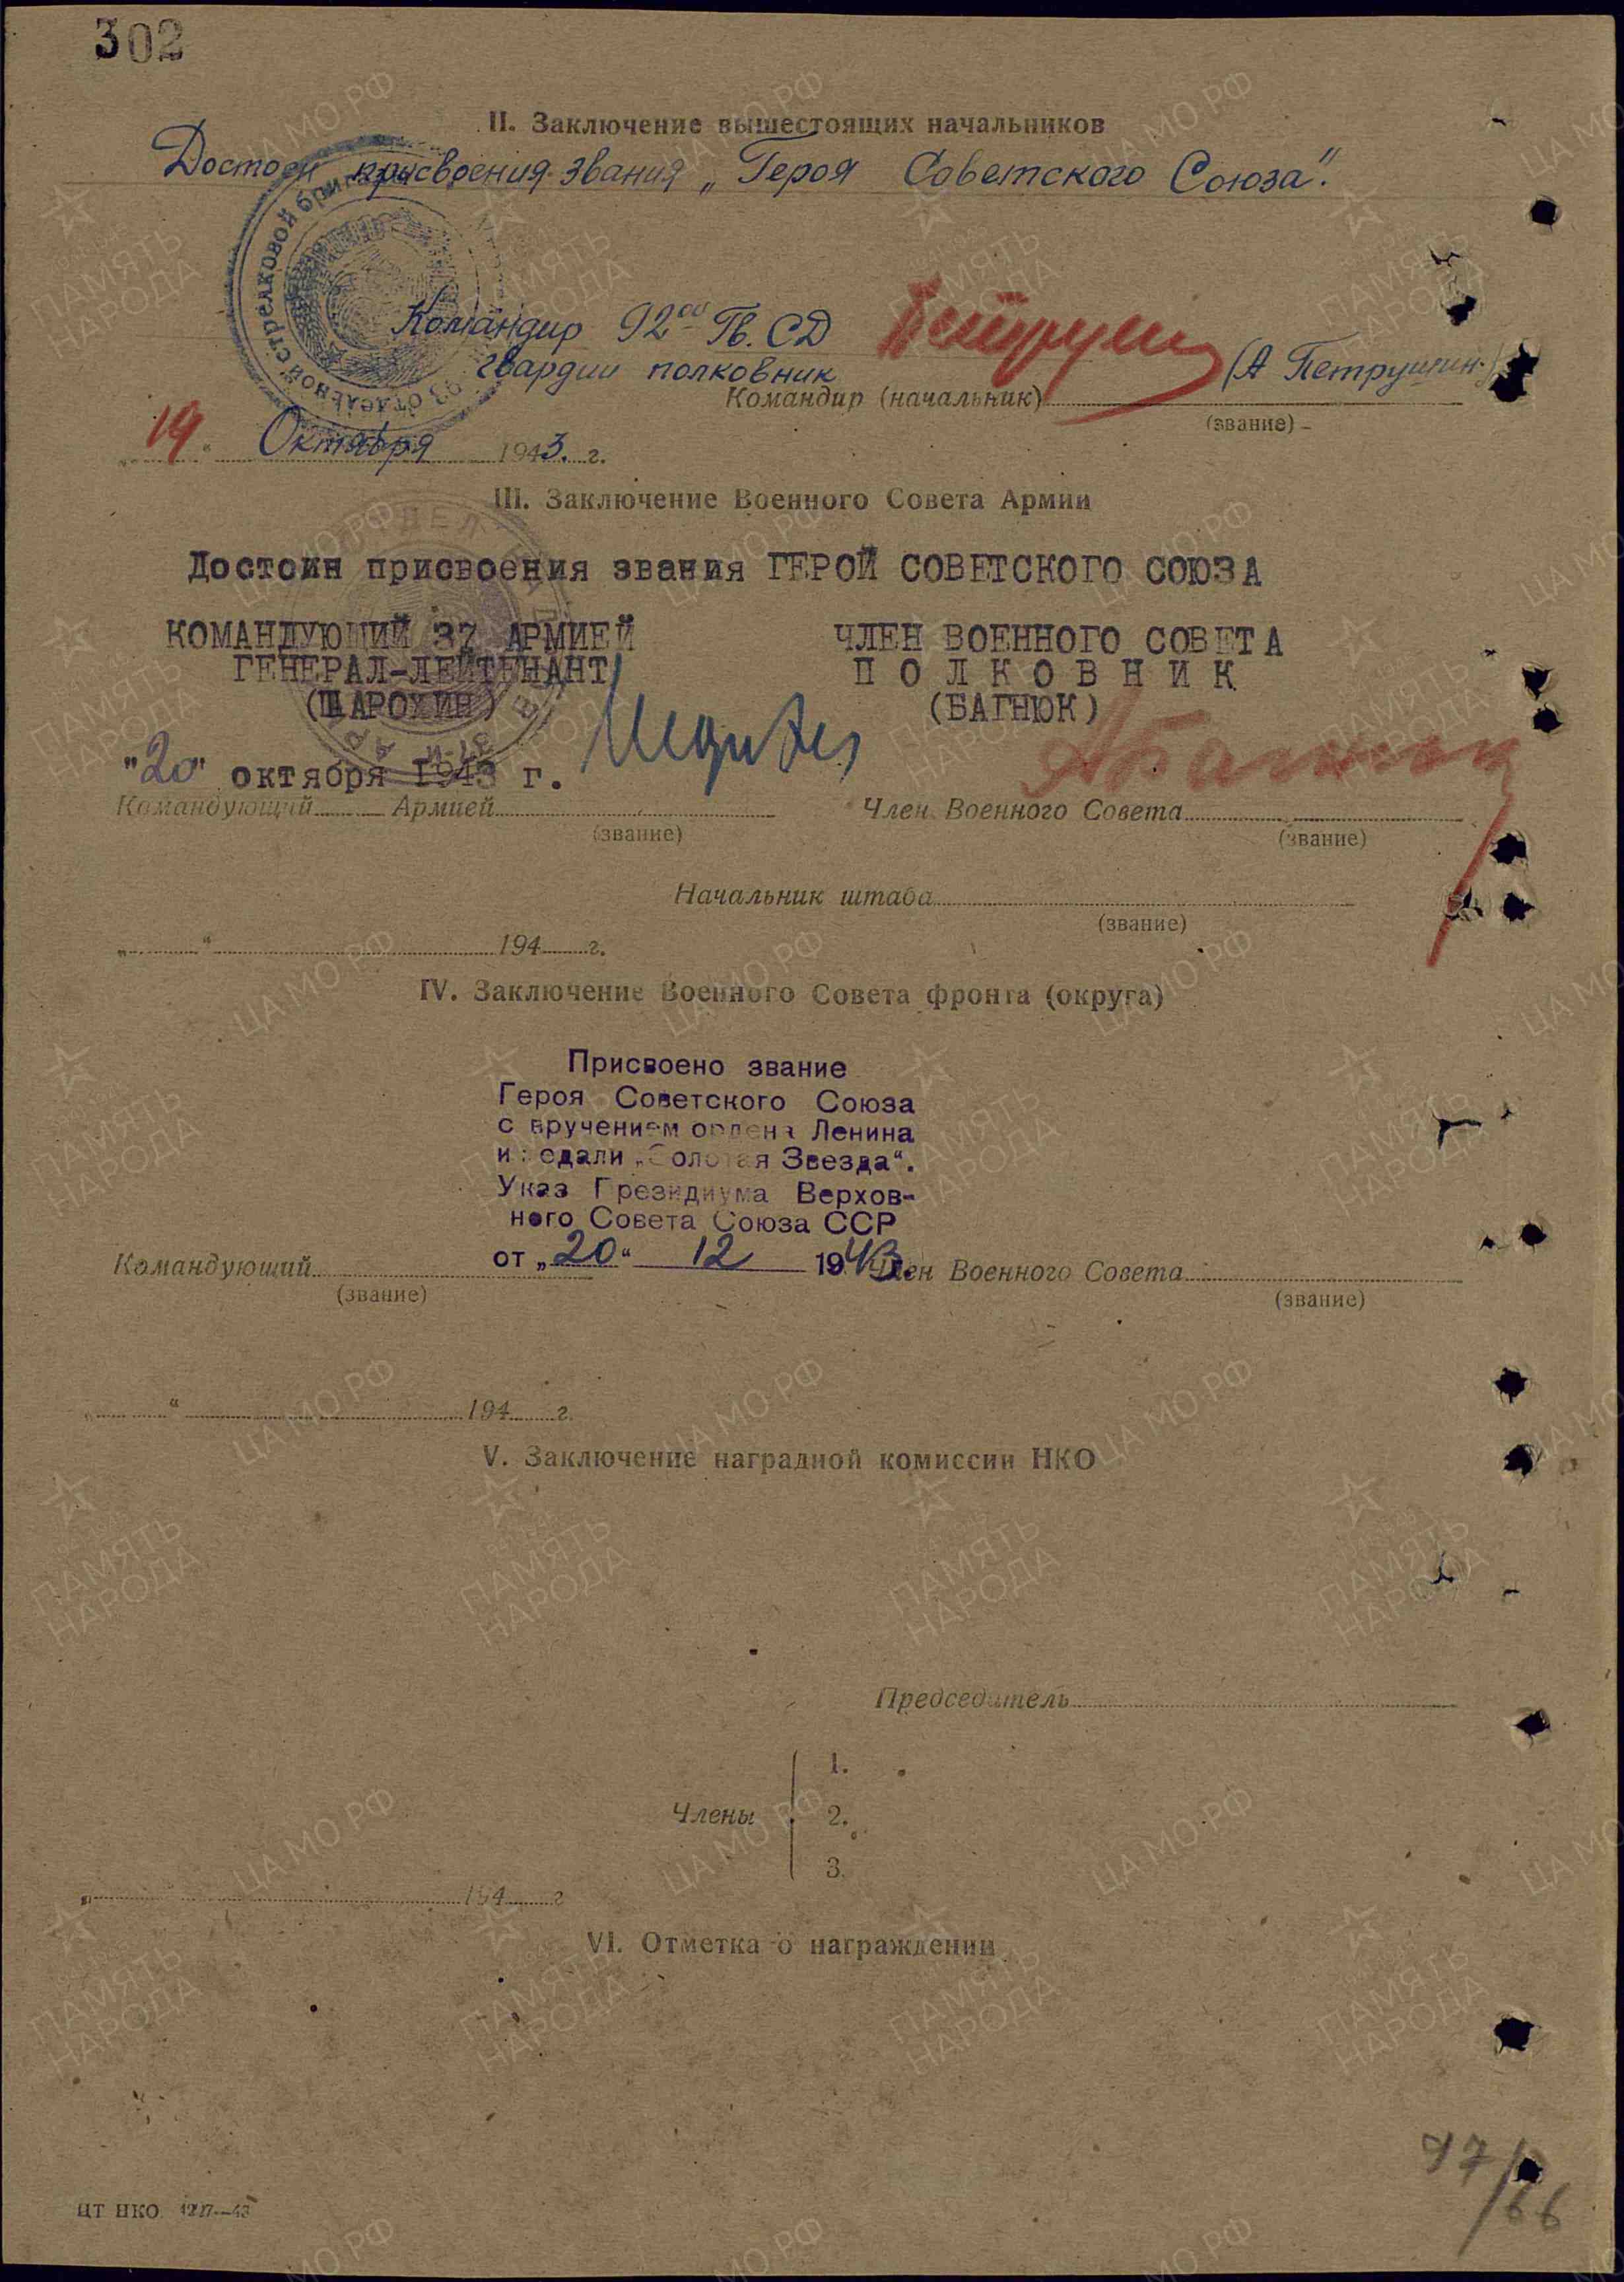 302
II. Заключение вышестоящих начальников
Достоен присвоения звания „Героя Советского Союза".
отдельной стрелковой бригады
Командир 92ой Гв. СД
гвардии полковник
(А Петрушин.)
Командир (начальник)
(звание)
19 Октября 1943. г.
III. Заключение Военного Совета Армии
Достоин присвоения звания ГЕРОЙ СОВЕТСКОГО СОЮЗА
КОМАНДУЮЩИЙ 37 АРМИЕЙ
ГЕНЕРАЛ-ЛЕЙТЕНАНТ
(ШАРОХИН)
ЧЛЕН ВОЕННОГО СОВЕТА
ПОЛКОВНИК
(БАГНЮК)
"20" октября 1943 г.
Командующий Армией
(звание)
Член Военного Совета
(звание)
Начальник штаба
(звание)
„ “ 194 г.
IV. Заключение Военного Совета фронта (округа)
Присвоено звание
Героя Советского Союза
с вручением ордена Ленина
и медали „Золотая Звезда“.
Указ Президиума Верхов-
ного Совета Союза ССР
от „20“ 12 1943.
Командующий
(звание)
Член Военного Совета
(звание)
„ “ 194 г.
V. Заключение наградной комиссии НКО
Председатель
Члены
1.
2.
3.
„ 194 г
VI. Отметка о награждении
97/66
ЦТ НКО 1227—43
ПАМЯТЬ НАРОДА
ЦА МО РФ